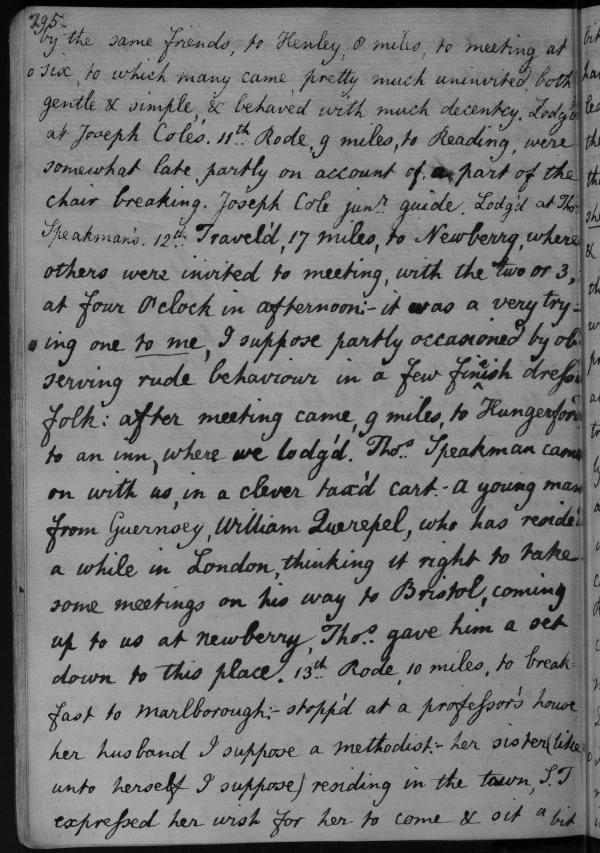 295.
by the same friends, to Henley, 8 miles, to meeting at
six, to which many came pretty much uninvited, both
gentle & simple, & behaved with much decentcy. Lodg'd
at Joseph Coles. 11th. Rode, 9 miles, to Reading, were
somewhat late, partly on account of a part of the
chair breaking. Joseph Cole junr. guide. Lodg'd at Thos.
Speakman's. 12th. Travel'd, 17 miles, to Newberry, where
others were invited to meeting, with the two or 3,
at four O'clock in afternoon:- it was a very try-
ing one to me, I suppose partly occasioned by ob-
serving rude behaviour in a few finish dress'd
folk: after meeting came, 9 miles, to Hungerford
to an inn, where we lodg'd. Thos. Speakman came
on with us, in a clever tax'd cart.- A young man
from Guernsey, William Querepel, who has resided
a while in London, thinking it right to take
some meetings on his way to Bristol, coming
up to us at Newberry, Thos. gave him a set
down to this place. 13th. Rode, 10 miles, to break-
fast to Marlborough:- stopp'd at a professor's house
her husband I suppose a methodist:- her sister (like
unto herself I suppose) residing in the town, S.T
expressed her wish for her to come & sit a bit